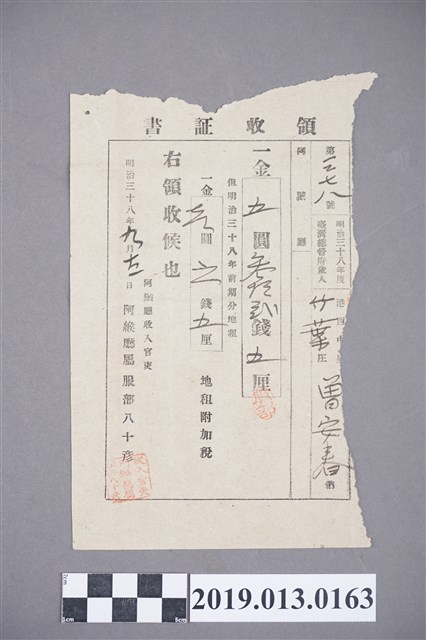 領收証書
第三七八號
明治三十八年度
臺灣總督府歲入
港西中里
竹葉庄
曾安春 納
阿緱廳
一金 五圓参拾弐錢五厘
但明治三十八年前期分地租
一金 圓 錢五厘 地租附加稅
右領收候也
明治三十八年九月 日
阿緱廳收入官吏
阿緱廳屬 服部八十彥
2cm
1cm
5cm
2019.013.0163